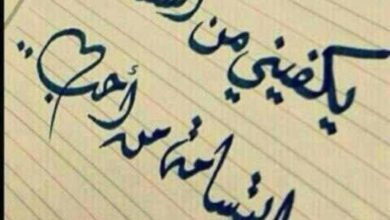 يكفيني من
ابتسامة من أحب..